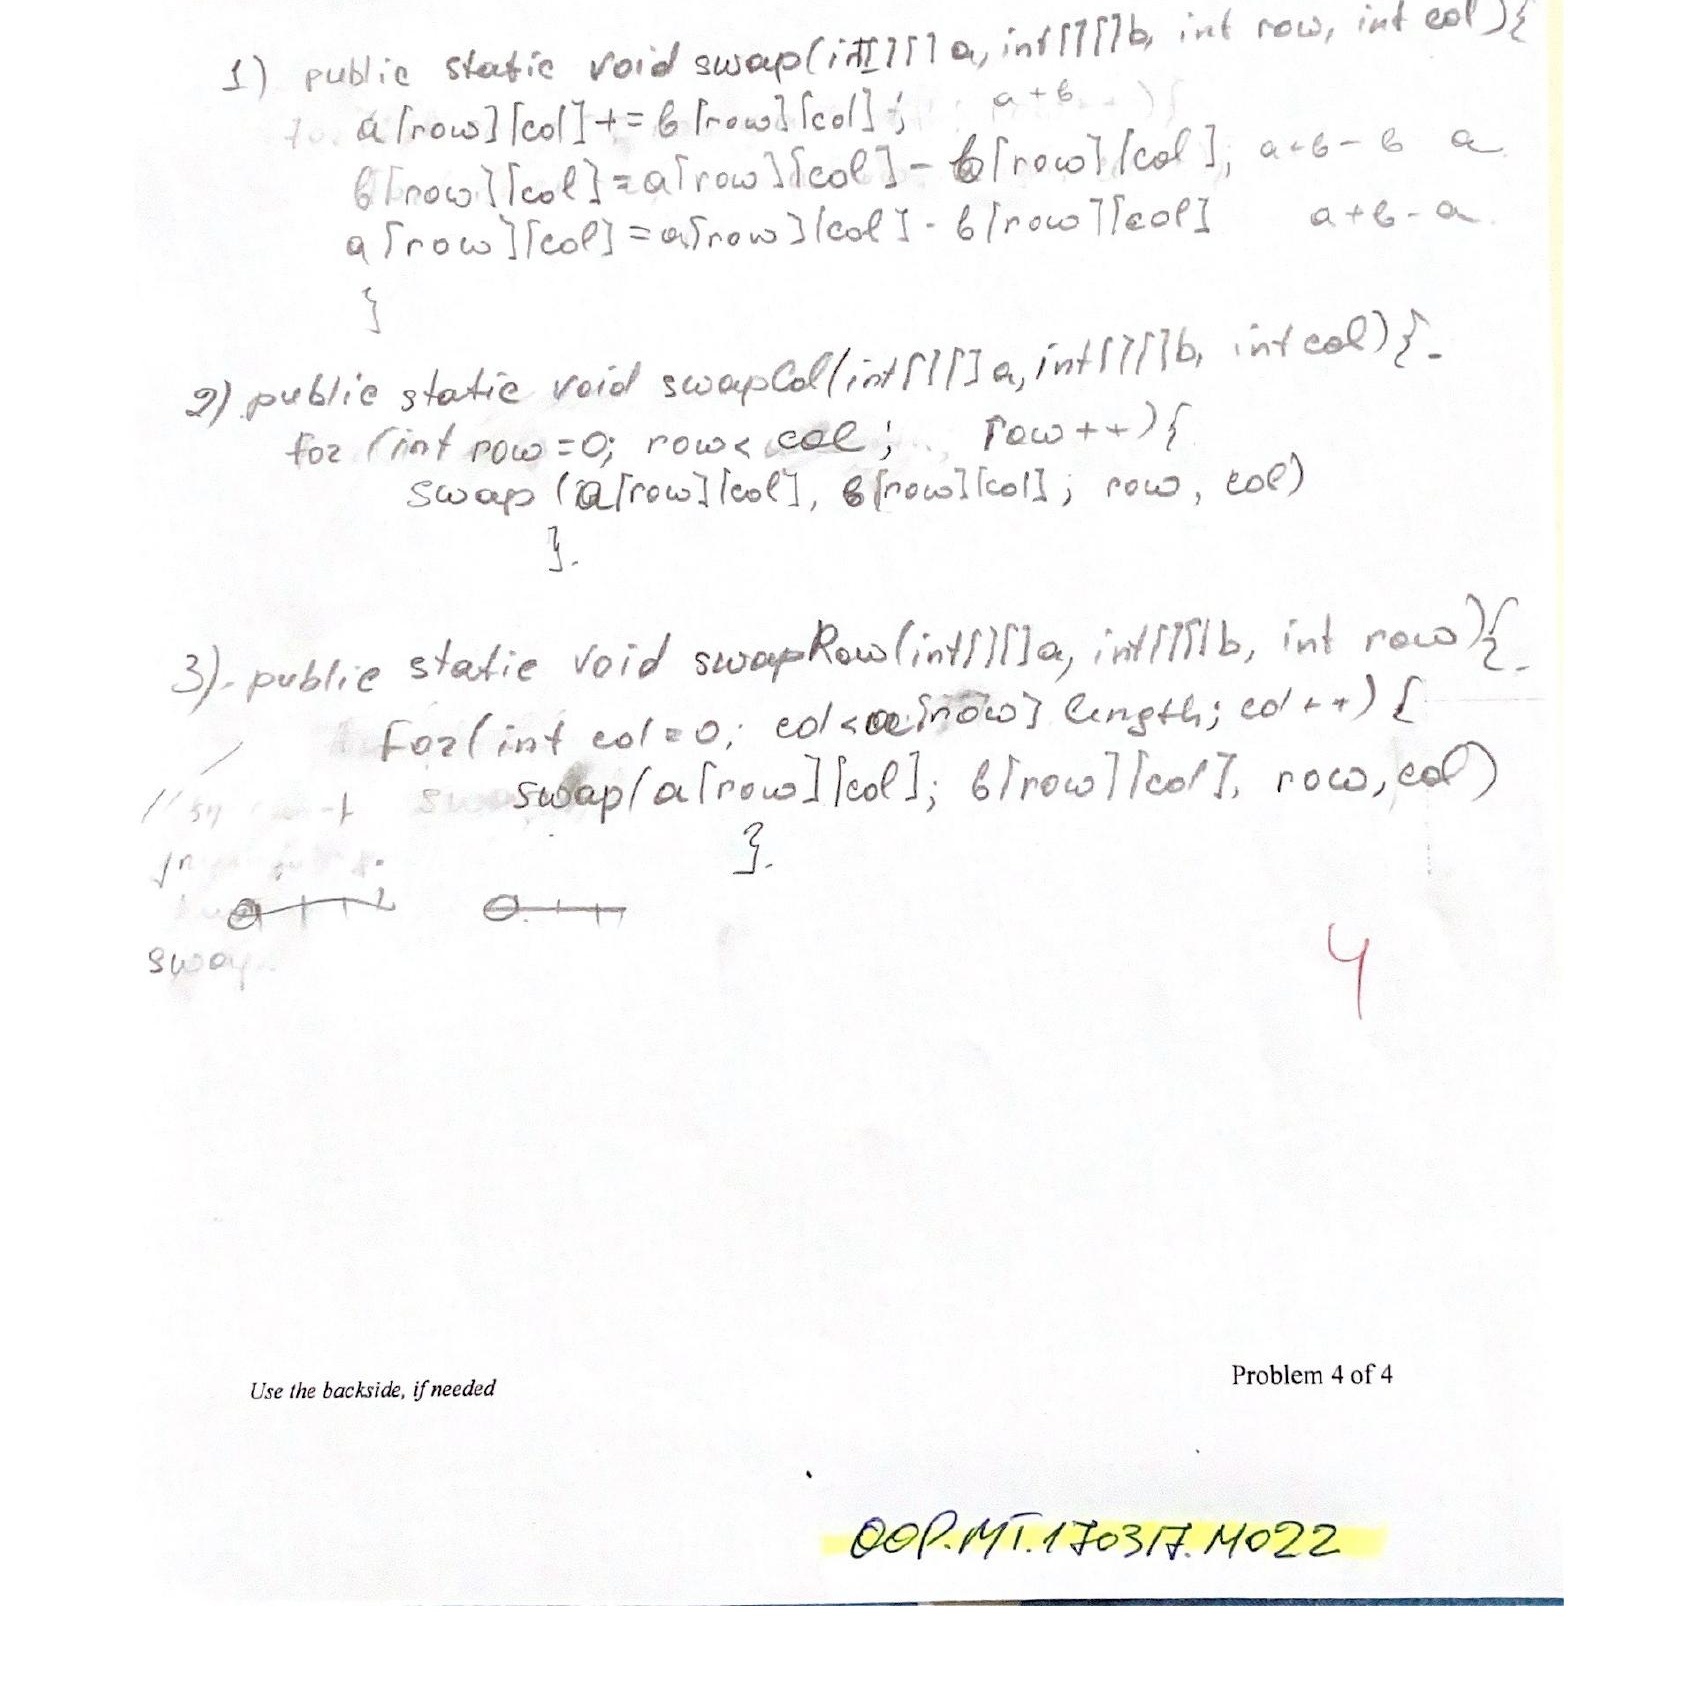 1) public static void swap(int[][] a, int[][] b, int row, int col){
a[row][col] += b[row][col]; a + b
b[row][col] = a[row][col] - b[row][col]; a+b - b a
a[row][col] = a[row][col] - b[row][col] a + b - a
}
2) public static void swapCol(int[][] a, int[][] b, int col){
for (int row = 0; row < col; row ++){
swap (a[row][col], b[row][col]; row, col)
}
3) public static void swapRow(int[][] a, int[][] b, int row){
for(int col = 0; col < a[row] length; col ++) {
swap(a[row][col]; b[row][col], row, col)
}
4
Use the backside, if needed
Problem 4 of 4
OOP.MT.170317.M022